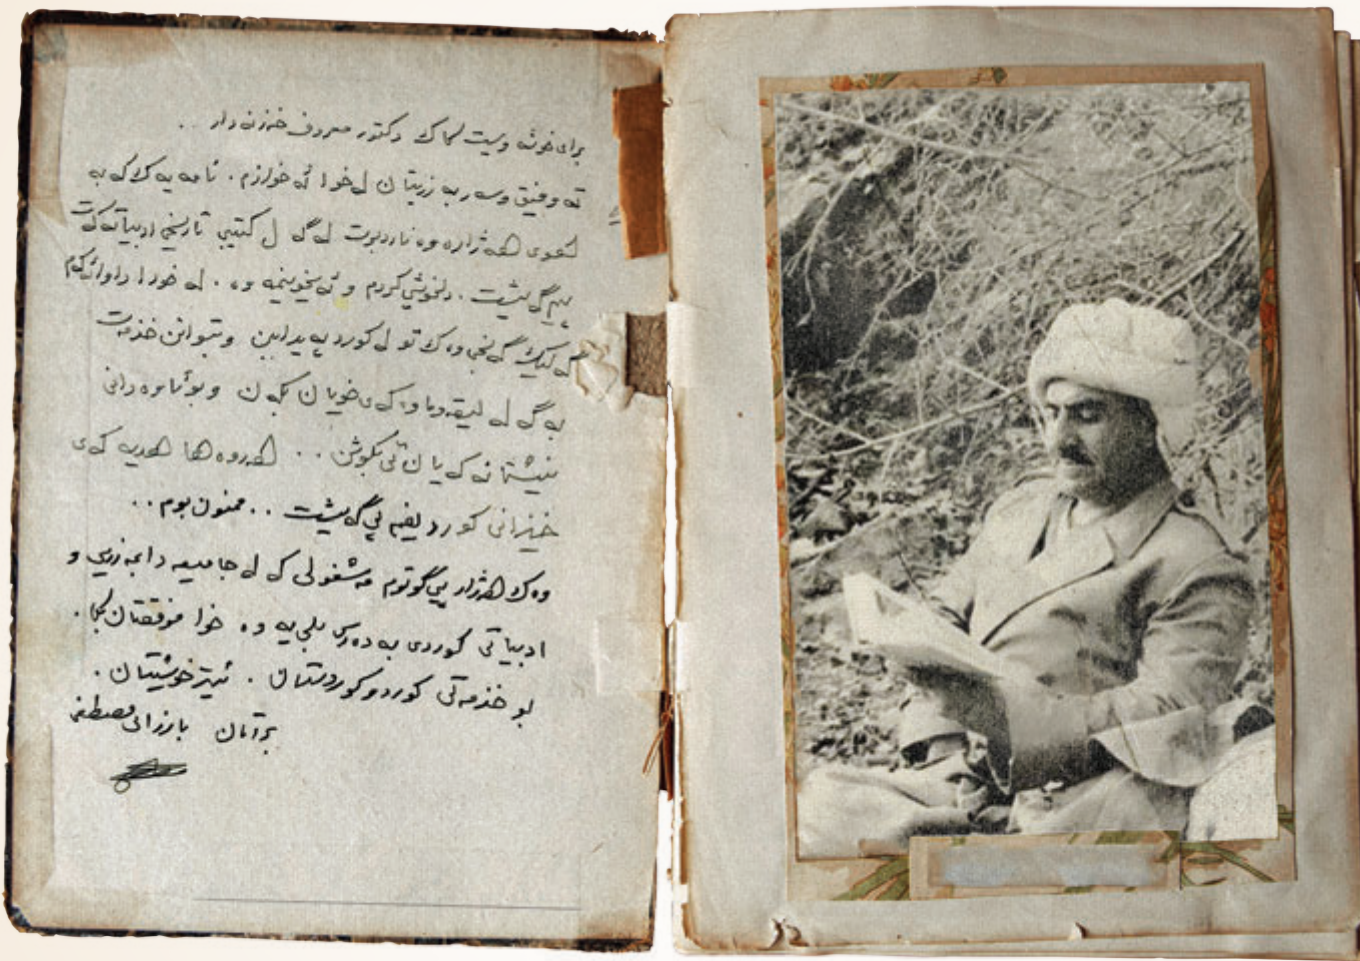 برای خوشه ویست کاک دکتور معروف خزنه دار ..
ته وفیق وسه ربه رزیتان له خوا ئه خوازم. نامه یه کاکه به
هه ژاره وه ناردبوت له گه ل کتیبی تاریخی ادبیاته کت
پیم گه یشت. دلخوشی کردم و ئه یخوینمه وه. له خودا داوائه که م
گه لیک گه نجی وه ک تو له کورد په یدا ببن و بتوانن خذمه ت
به گه ل لیقه وماوه که ی خویان بکه ن و بوئاوه دانی
نیشتمانه که یان تی بکوشن .. هه روه ها هدیه که ی
خیزانی کورد یشم پی گه یشت .. ممنون بوم ..
وه ک هه ژار پیی گوتوم مه شغولی که له جامیعه دابمه زریی و
ادبیاتی کوردی به ده رس بلیی یه وه خوا موفقتان بکا.
بو خذمه تی کورد و کوردستان. ئیتر خوشیتان.
براتان بارزانی مصطفی